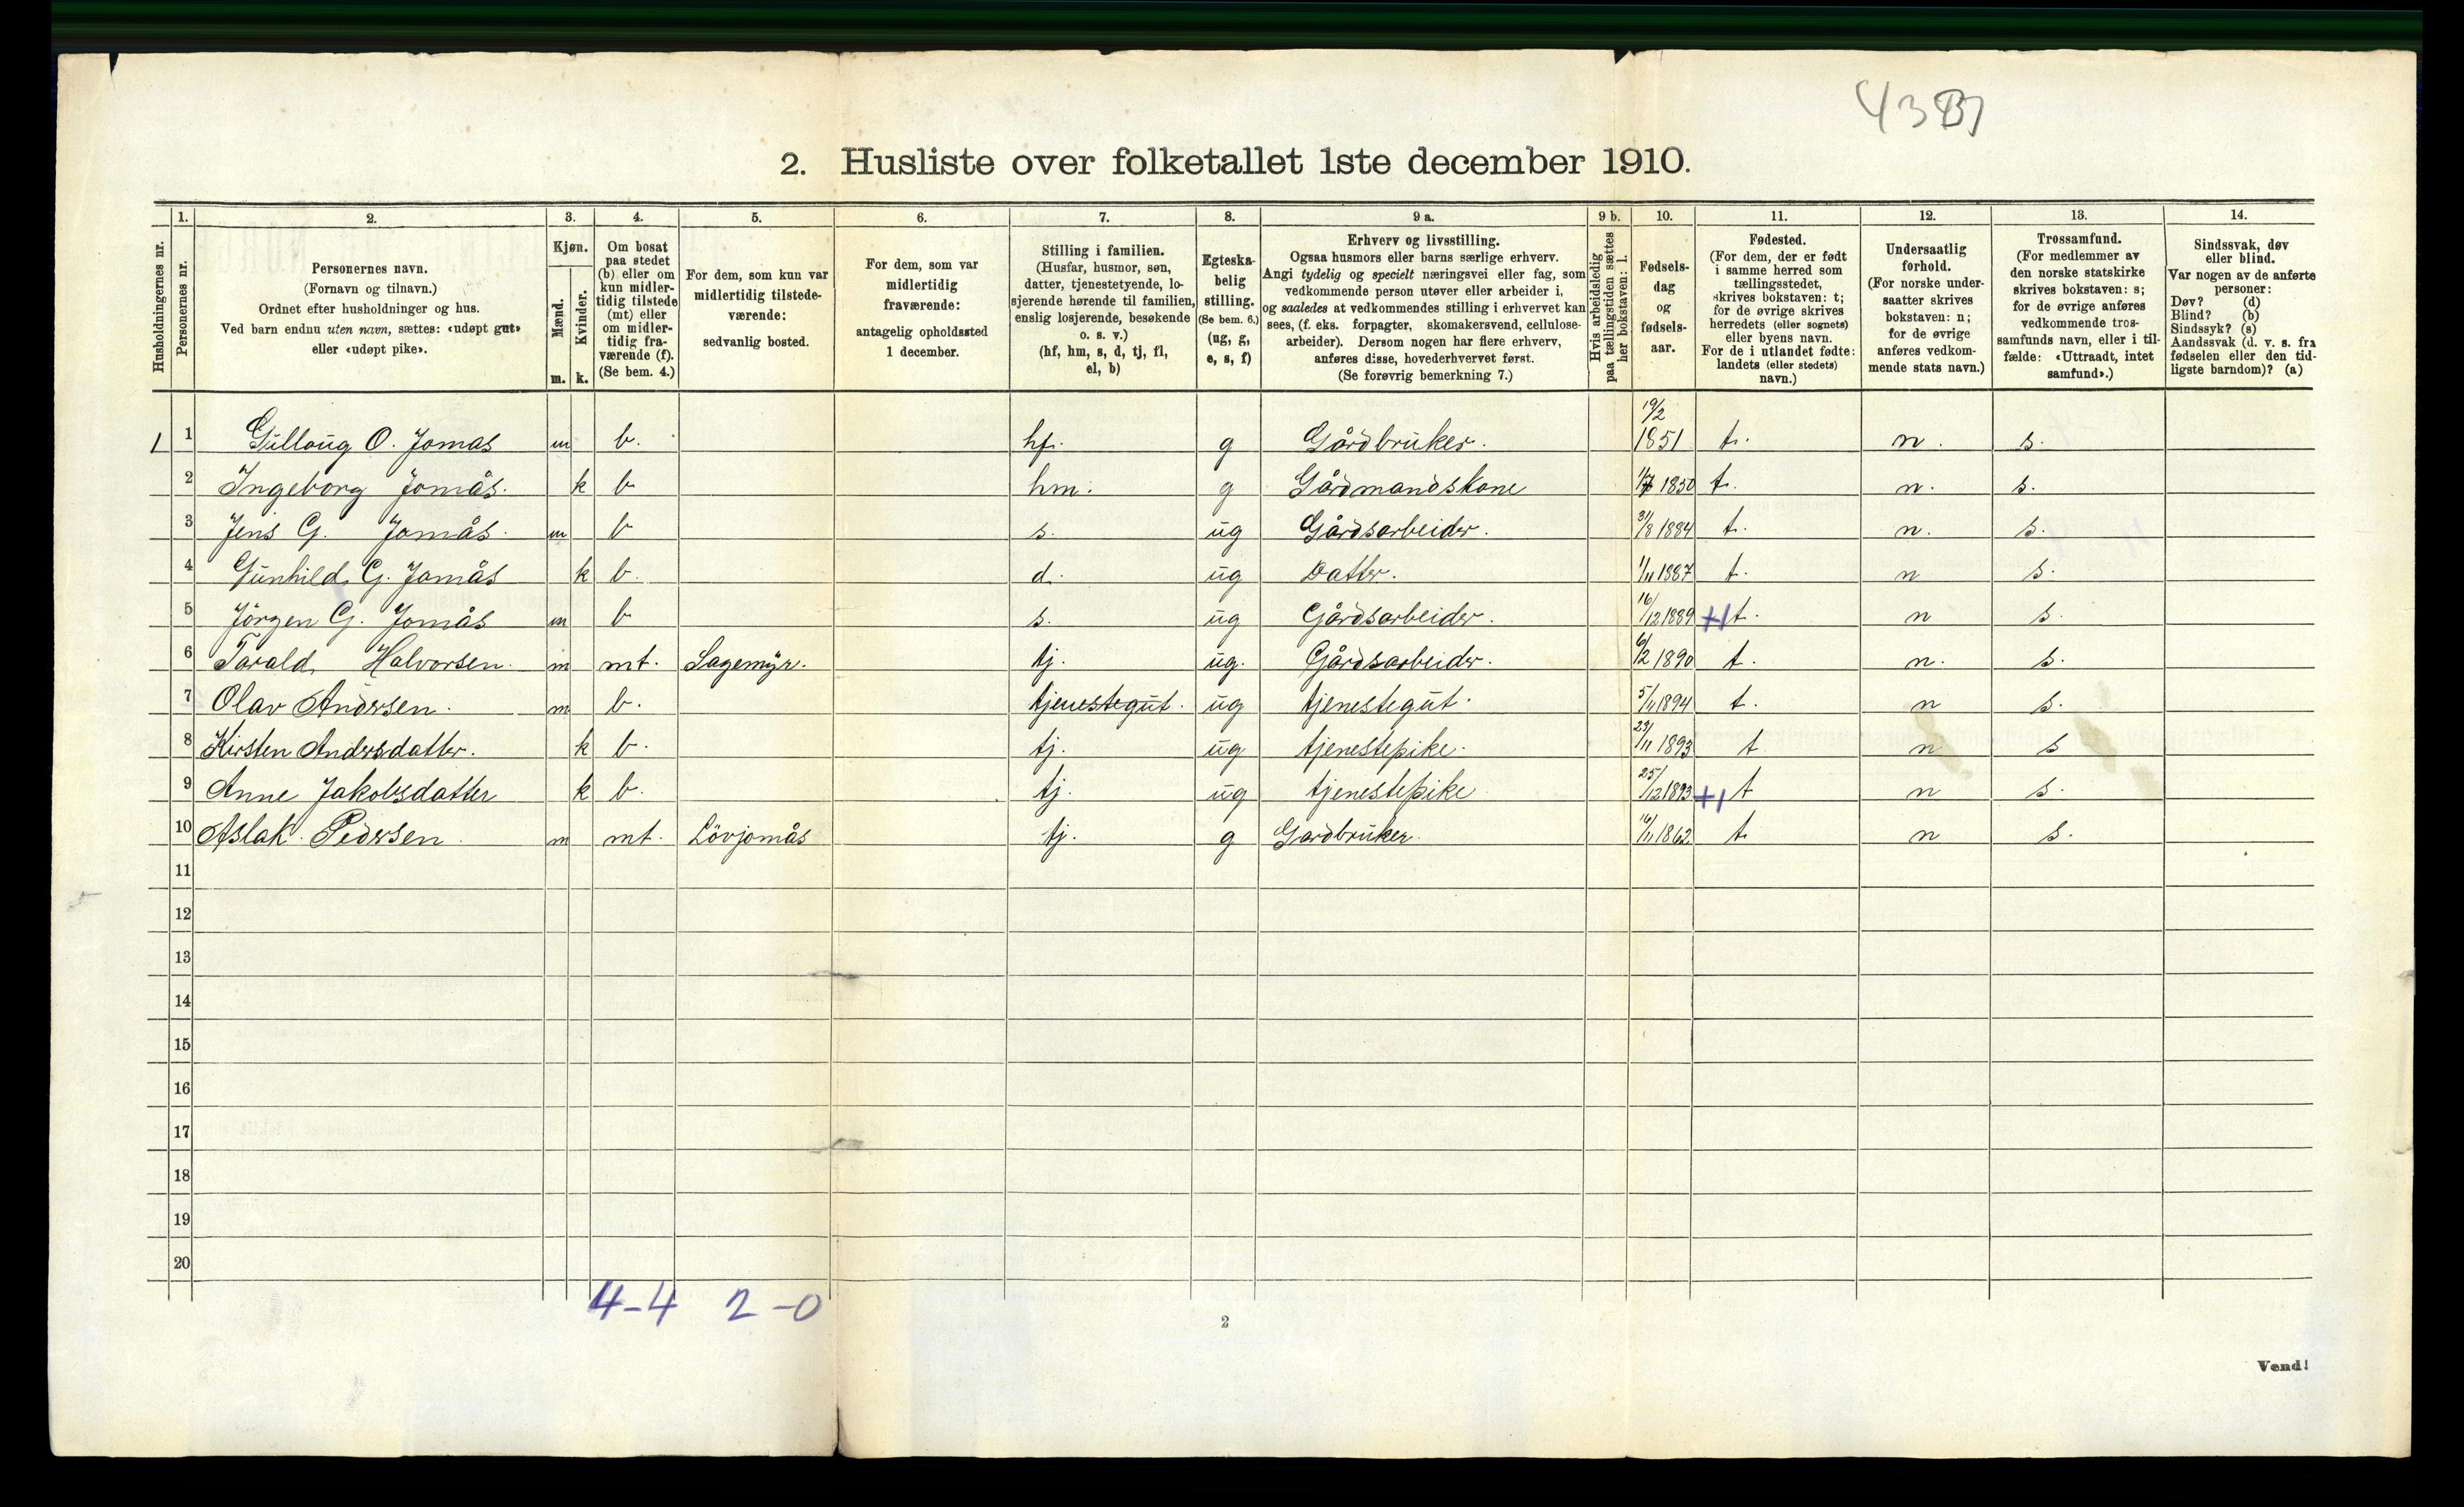 43 B
2. Husliste over folketallet 1ste december 1910.
Husholdningernes nr.
1. Personernes nr.
2. Personernes navn.
(Fornavn og tilnavn.)
Ordnet efter husholdninger og hus.
Ved barn endnu uten navn, sættes: «udøpt gut»
eller «udøpt pike».
3. Kjøn.
Mænd. m.
Kvinder. k.
4. Om bosat
paa stedet
(b) eller om
kun midler-
tidig tilstede
(mt) eller
om midler-
tidig fra-
værende (f).
(Se bem. 4.)
5. For dem, som kun var
midlertidig tilstede-
værende:
sedvanlig bosted.
6. For dem, som var
midlertidig
fraværende:
antagelig opholdssted
1 december.
7. Stilling i familien.
(Husfar, husmor, søn,
datter, tjenestetyende, lo-
sjerende hørende til familien,
enslig losjerende, besøkende
o. s. v.)
(hf, hm, s, d, tj, fl,
el, b)
8. Egteska-
belig
stilling.
(Se bem. 6.)
(ug, g,
e, s, f)
9 a. Erhverv og livsstilling.
Ogsaa husmors eller barns særlige erhverv.
Angi tydelig og specielt næringsvei eller fag, som
vedkommende person utøver eller arbeider i,
og saaledes at vedkommendes stilling i erhvervet kan
sees, (f. eks. forpagter, skomakersvend, cellulose-
arbeider). Dersom nogen har flere erhverv,
anføres disse, hovederhvervet først.
(Se forøvrig bemerkning 7.)
9 b. Hvis arbeidsledig
paa tællingstiden sættes
her bokstaven: l.
10. Fødsels-
dag
og
fødsels-
aar.
11. Fødested.
(For dem, der er født
i samme herred som
tællingsstedet,
skrives bokstaven: t;
for de øvrige skrives
herredets (eller sognets)
eller byens navn.
For de i utlandet fødte:
landets (eller stedets)
navn.)
12. Undersaatlig
forhold.
(For norske under-
saatter skrives
bokstaven: n;
for de øvrige
anføres vedkom-
mende stats navn.)
13. Trossamfund.
(For medlemmer av
den norske statskirke
skrives bokstaven: s;
for de øvrige anføres
vedkommende tros-
samfunds navn, eller i til-
fælde: «Uttraadt, intet
samfund».)
14. Sindssvak, døv
eller blind.
Var nogen av de anførte
personer:
Døv? (d)
Blind? (b)
Sindssyk? (s)
Aandssvak (d. v. s. fra
fødselen eller den tid-
ligste barndom)? (a)
1 1 Gulloug O. Jomas m b. hf. g Gårdbruker. 19/2 1851 t. n. s.
2 Ingeborg Jomås. k b hm. g Gårdmandskone 1850 t. n. s.
3 Jens G. Jomås. m b s. ug Gårdsarbeider. 31/8 1884 t. n. s.
4 Gunhild G. Jomås k b. d. ug Datter. 1/11 1887 t. n s.
5 Jörgen G. Jomås m b s. ug Gårdsarbeider. 16/12 1889 +1 t. n s.
6 Tarald Halvorsen. m mt. Lagemyr. tj. ug. Gårdsarbeider. 6/2 1890 t. n. s.
7 Olav Andersen. m b. tjenestegut. ug tjenestegut. 5/11 1894 t. n s.
8 Kirsten Andersdatter. k b. tj. ug tjenestepike. 23/11 1893 t n s
9 Anne Jakobsdatter k b. tj. ug tjenestepike 25/12 1893 +1 t n s.
10 Aslak Pedersen. m mt. Lövjomås tj. g Gardbruker. 16/11 1862 t. n s.
11
12
13
14
15
16
17
18
19
20
4-4 2-0
2
Vend!